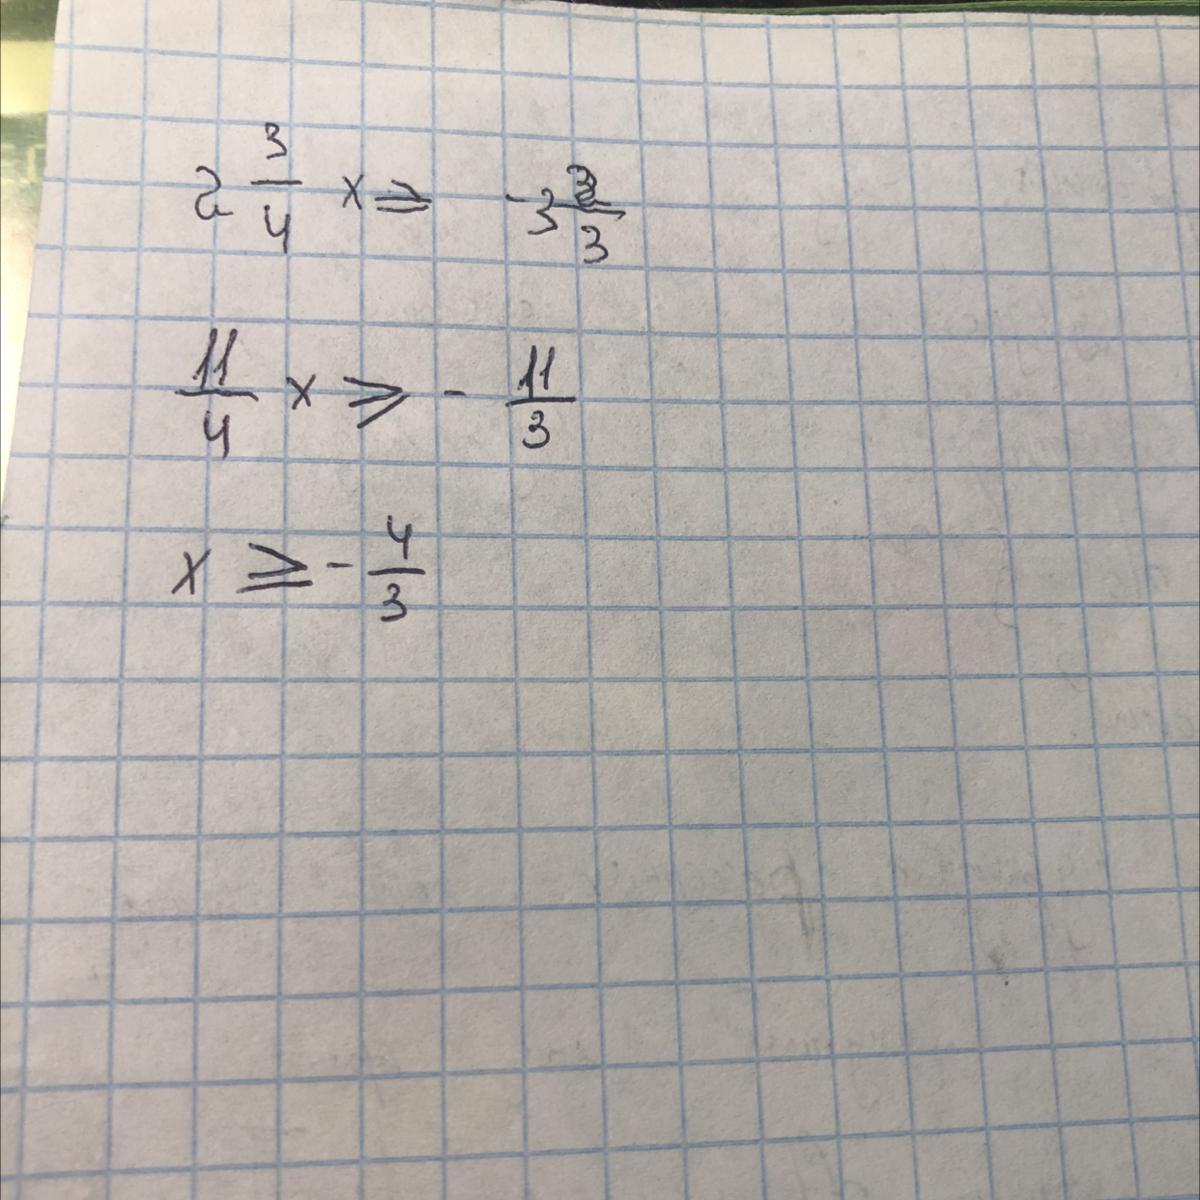 2 3/4 x ≥ -3 2/3
11/4 x ≥ - 11/3
x ≥ - 4/3